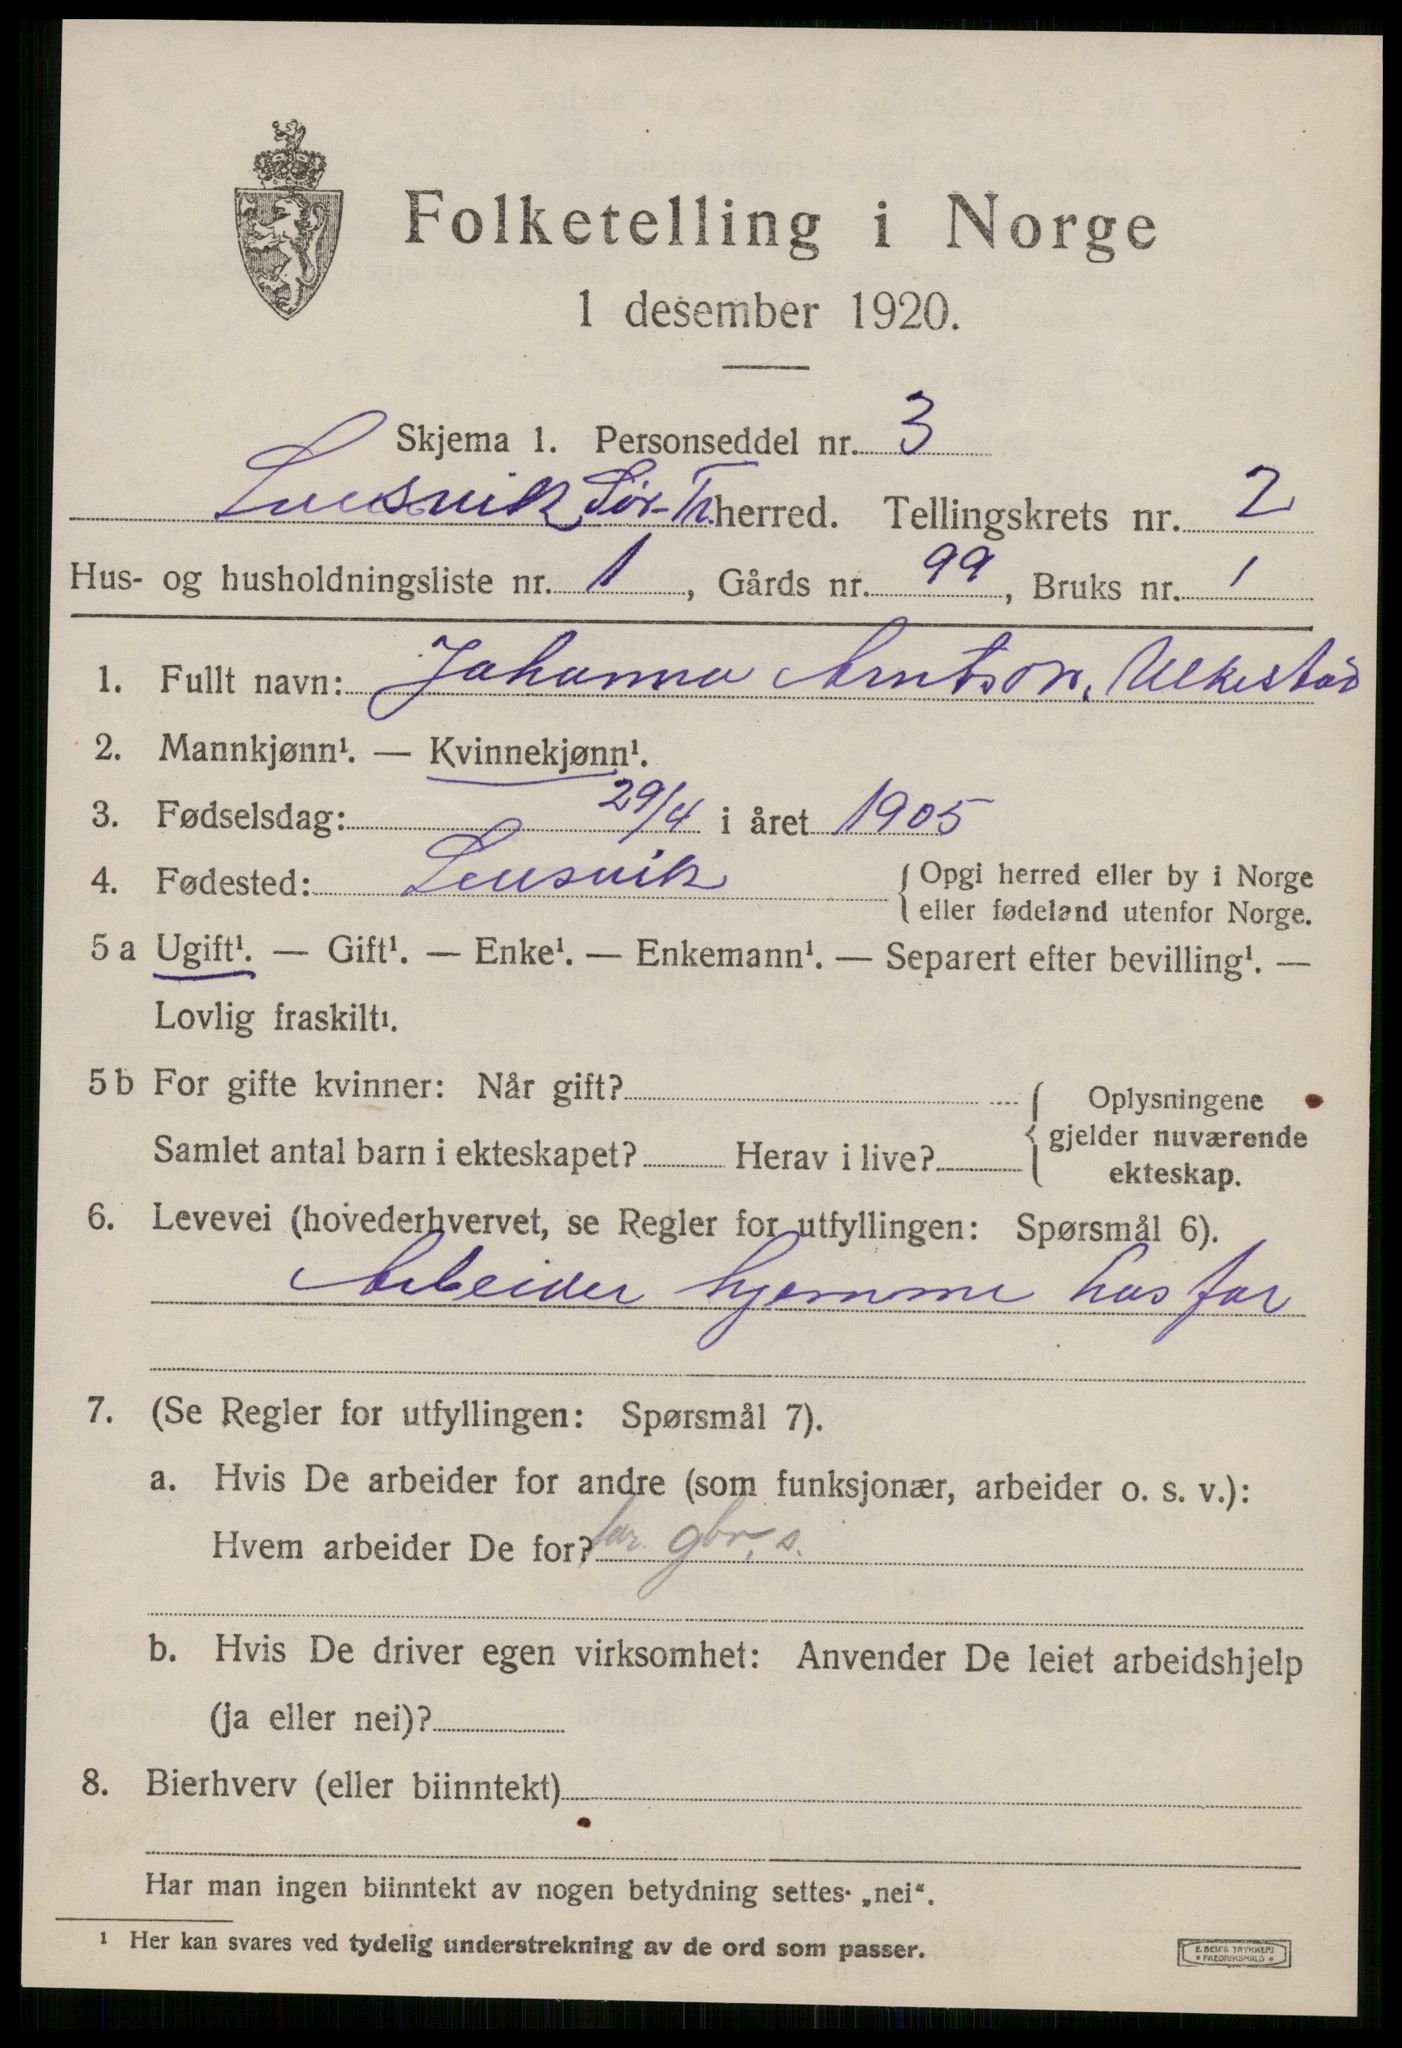 Folketelling i Norge
1 desember 1920.
Skjema 1. Personseddel nr. 3
Lensvik Sør-Tr. herred. Tellingskrets nr. 2
Hus- og husholdningsliste nr. 1, Gårds nr. 99, Bruks nr. 1
1. Fullt navn: Johanna Arntson, Ulkestad
2. Mannkjønn¹. — Kvinnekjønn¹.
3. Fødselsdag: 29/4 i året 1905
4. Fødested: Lensvik {Opgi herred eller by i Norge
eller fødeland utenfor Norge.
5 a Ugift¹. — Gift¹. — Enke¹. — Enkemann¹. — Separert efter bevilling¹. —
Lovlig fraskilt¹.
5 b For gifte kvinner: Når gift? { Oplysningene
gjelder nuværende
Samlet antal barn i ekteskapet? Herav i live?
ekteskap.
6. Levevei (hovederhvervet, se Regler for utfyllingen: Spørsmål 6).
Arbeider hjemme hos far
7. (Se Regler for utfyllingen: Spørsmål 7).
a. Hvis De arbeider for andre (som funksjonær, arbeider o. s. v.):
Hvem arbeider De for? far gbr. s.
b. Hvis De driver egen virksomhet: Anvender De leiet arbeidshjelp
(ja eller nei)?
8. Bierhverv (eller biinntekt)
Har man ingen biinntekt av nogen betydning settes „nei“.
¹ Her kan svares ved tydelig understrekning av de ord som passer.
E. SEM'S TRYKKERI
• FREDRIKSHALD •